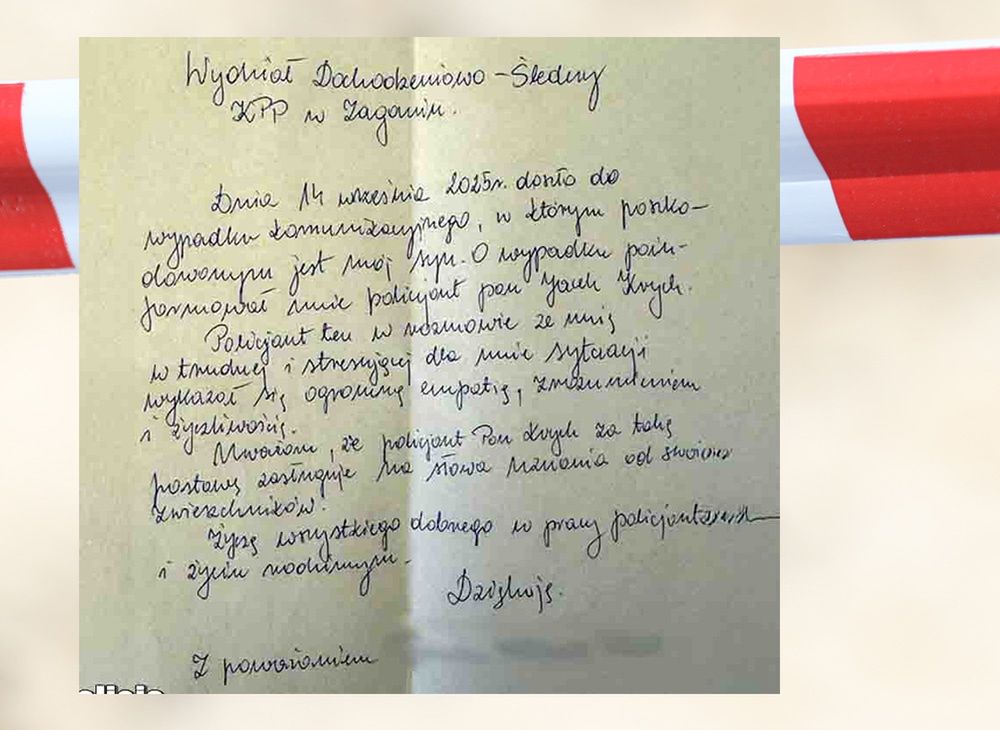 Wydział Dochodzeniowo-Śledczy
KPP w Żaganiu.
Dnia 14 września 2025r. doszło do
wypadku komunikacyjnego, w którym poszko-
dowanym jest mój syn. O wypadku poin-
formował mnie policjant pan Jacek Krych.
Policjant ten w rozmowie ze mną
w trudnej i stresującej dla mnie sytuacji
wykazał się ogromną empatią, zrozumieniem
i życzliwością.
Uważam, że policjant Pan Krych za taką
postawę zasługuje na słowa uznania od swoich
zwierzchników.
Życzę wszystkiego dobrego w pracy
i życiu rodzinnym.
Dziękuję.
Z poważaniem